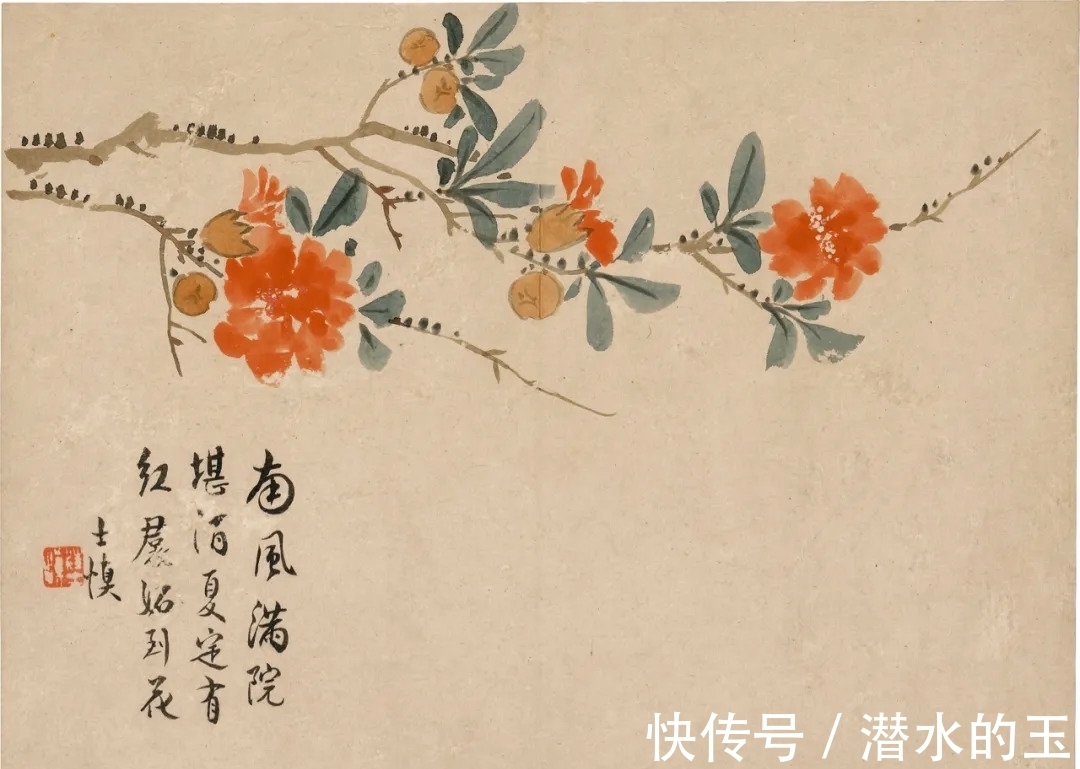 南風滿院
堪消夏定有
紅裠妬到花
士慎
快传号 / 潜水的玉